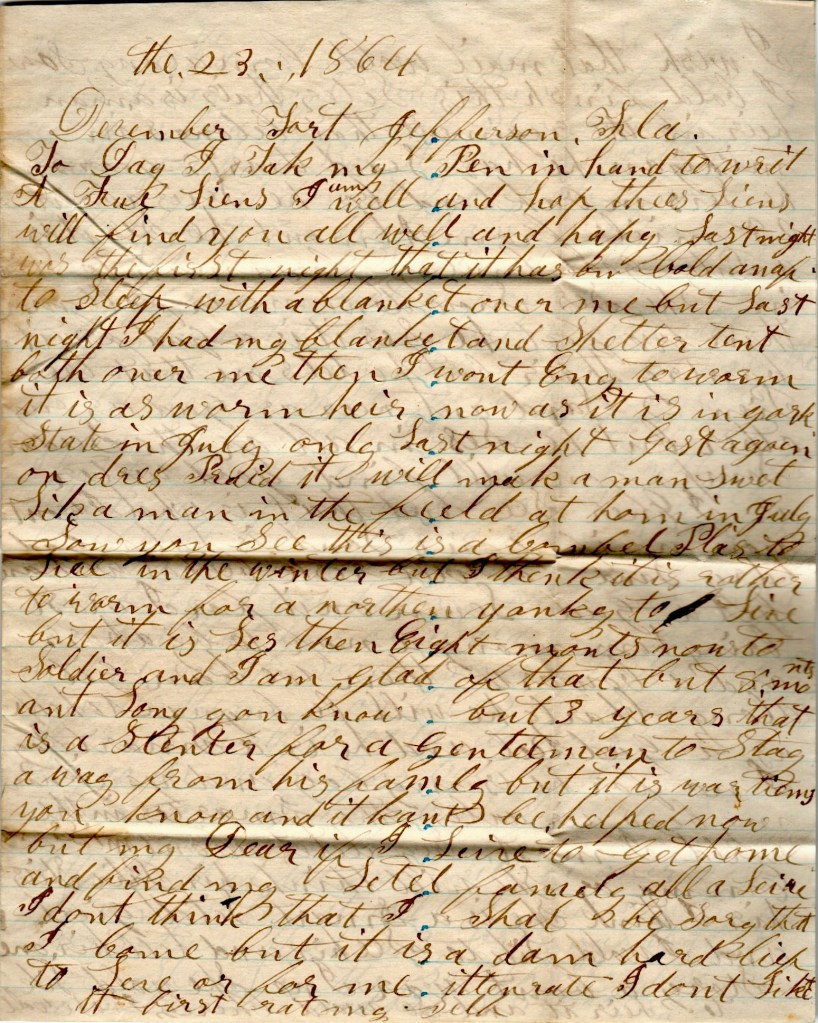 the. 23., 1864
December Fort Jefferson, Fila.
To Day I Tak my Pen in hand to writ
A Fur Liens I am well and hop thees Liens
will find you all well and hapy Last night
was the first night that it has bin cold anaf
to sleep with a blanket over me but Last
night I had my blanket and shelter tent
both over me then I wont Eng to worm
it is as worm heir now as it is in york
State in July only Last night Gost agoin
on dres Praid it will mak a man swet
Lik a man in the feeld at hom in July
Now you See this is a Plas to
Live in the winter but I think it is rather
to worm for a northen yanky to Live
but it is Les then Eight monts now to
Soldier and I am glad of that but 8 monts
ant Long you know but 3 years that
is a Stenter for a Gentelman to Stay
a way from his famly but it is war tiems
you know and it kant be helped now
but my Dear if I Leive to Get home
and find my Letel famely all a Leive
I dont think that I Shal be Sory that
I Come but it is a dam hard Lief
to Leve or for me ittenrate I dont Like
it first rat my Self